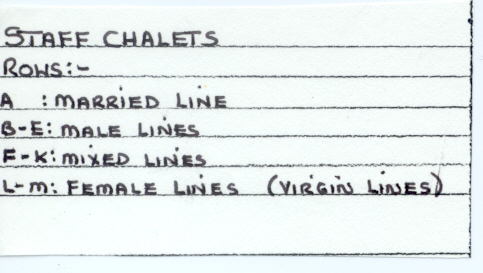 STAFF CHALETS
ROWS:-
A : MARRIED LINE
B-E: MALE LINES
F-K: MIXED LINES
L-M: FEMALE LINES (VIRGIN LINES)